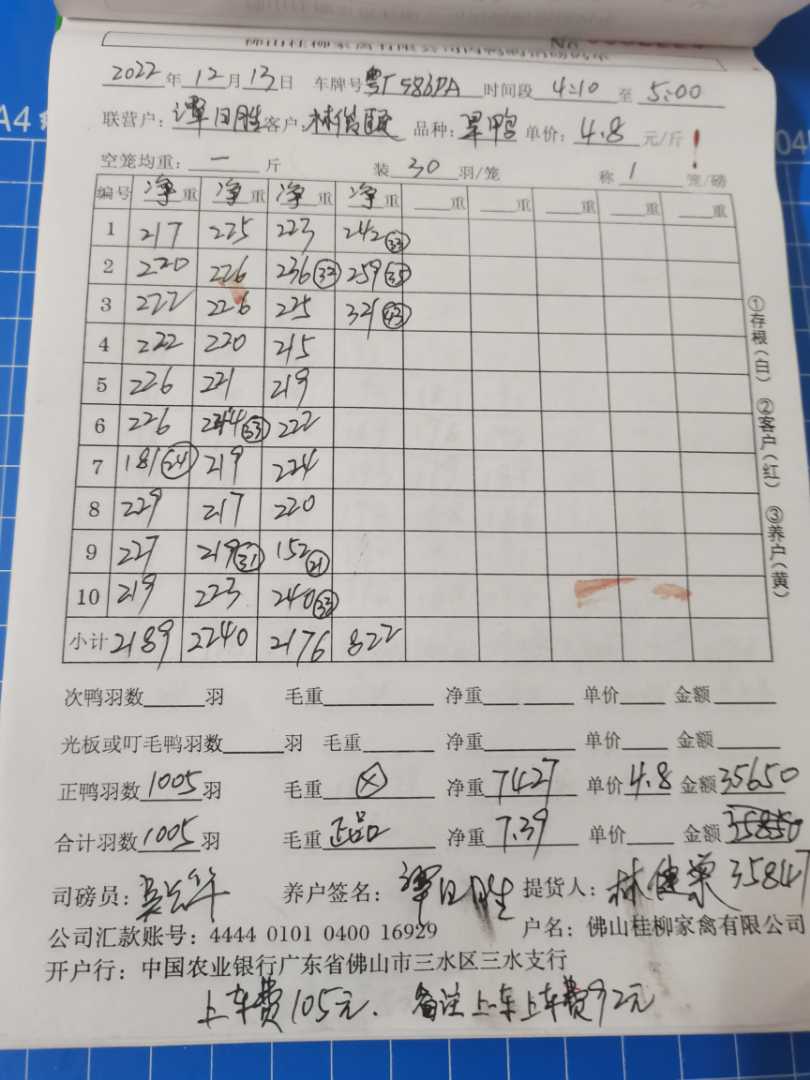 2022年12月13日 车牌号粤 986PA 时间段 4:10 至 5:00
联营户:谭日胜 客户: 品种: 鸭 单价:4.8 元/斤 !
空笼均重:一 斤 装 30 羽/笼 称 1 笼/磅
编号 净重 净重 净重 净重 重 重 重 重 重
1 217 225 223 242(33)
2 220 226 236(32) 259(35)
3 222 226 225 321(43)
4 222 220 215
5 226 221 219
6 226 244(33) 222
7 181(24) 219 224
8 229 217 220
9 227 219(31) 152(21)
10 219 223 240(33)
小计 2189 2240 2176 822
①存根(白) ②客户(红) ③养户(黄)
次鸭羽数 羽 毛重 净重 单价 金额
光板或叮毛鸭羽数 羽 毛重 净重 单价 金额
正鸭羽数 1005 羽 毛重 ⊗ 净重 7427 单价 4.8 金额 35650
合计羽数 1005 羽 毛重 正品 净重 7.39 单价 金额 35850
司磅员: 养户签名:谭日胜 提货人:林健 35847
公司汇款账号:4444 0101 0400 16929 户名:佛山桂柳家禽有限公司
开户行:中国农业银行广东省佛山市三水区三水支行
上车费105元. 备注上一车上车费92元